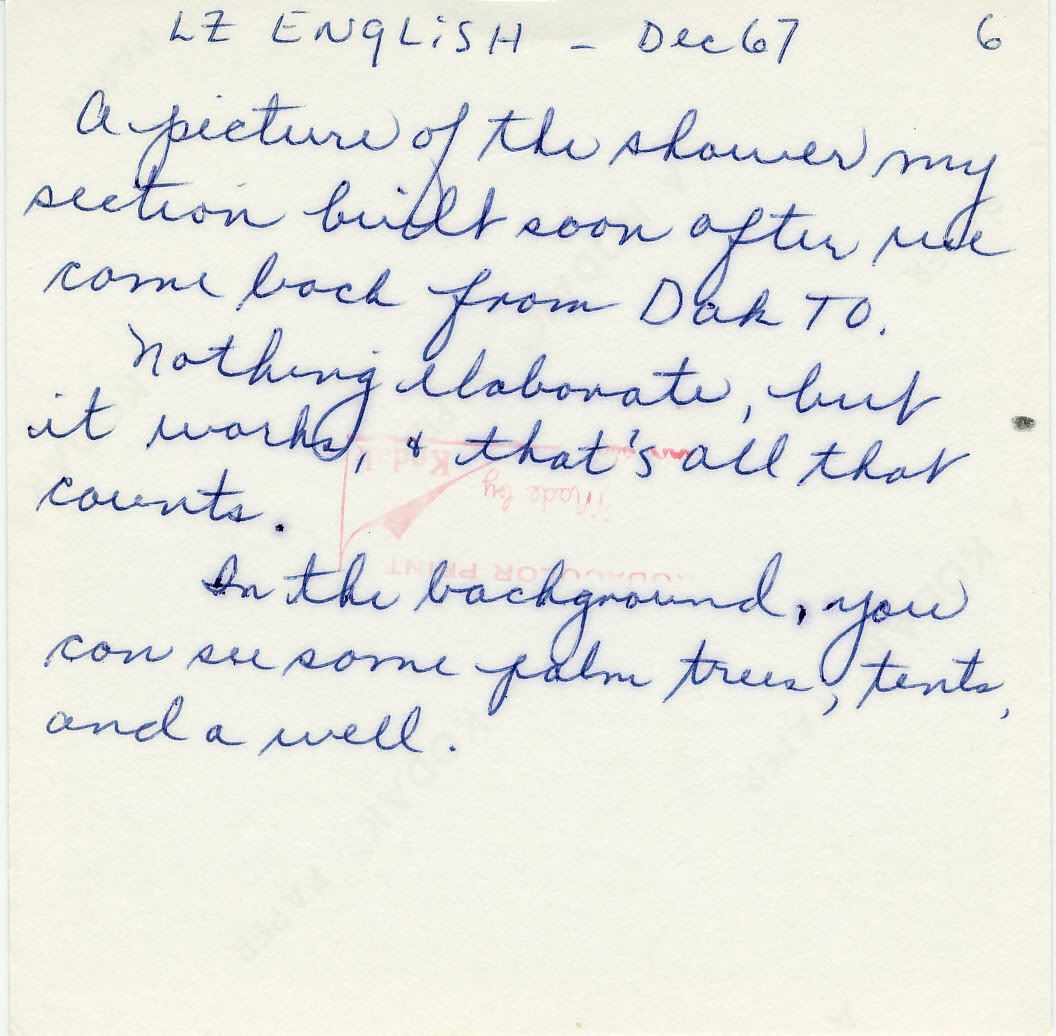 LZ ENGLISH - Dec 67 6
A picture of the shower my
section built soon after we
come back from Dak TO.
Nothing elaborate, but
it works, & that's all that
counts.
In the background, you
can see some palm trees, tents,
and a well.
Made by
Kodak
KODACOLOR PRINT